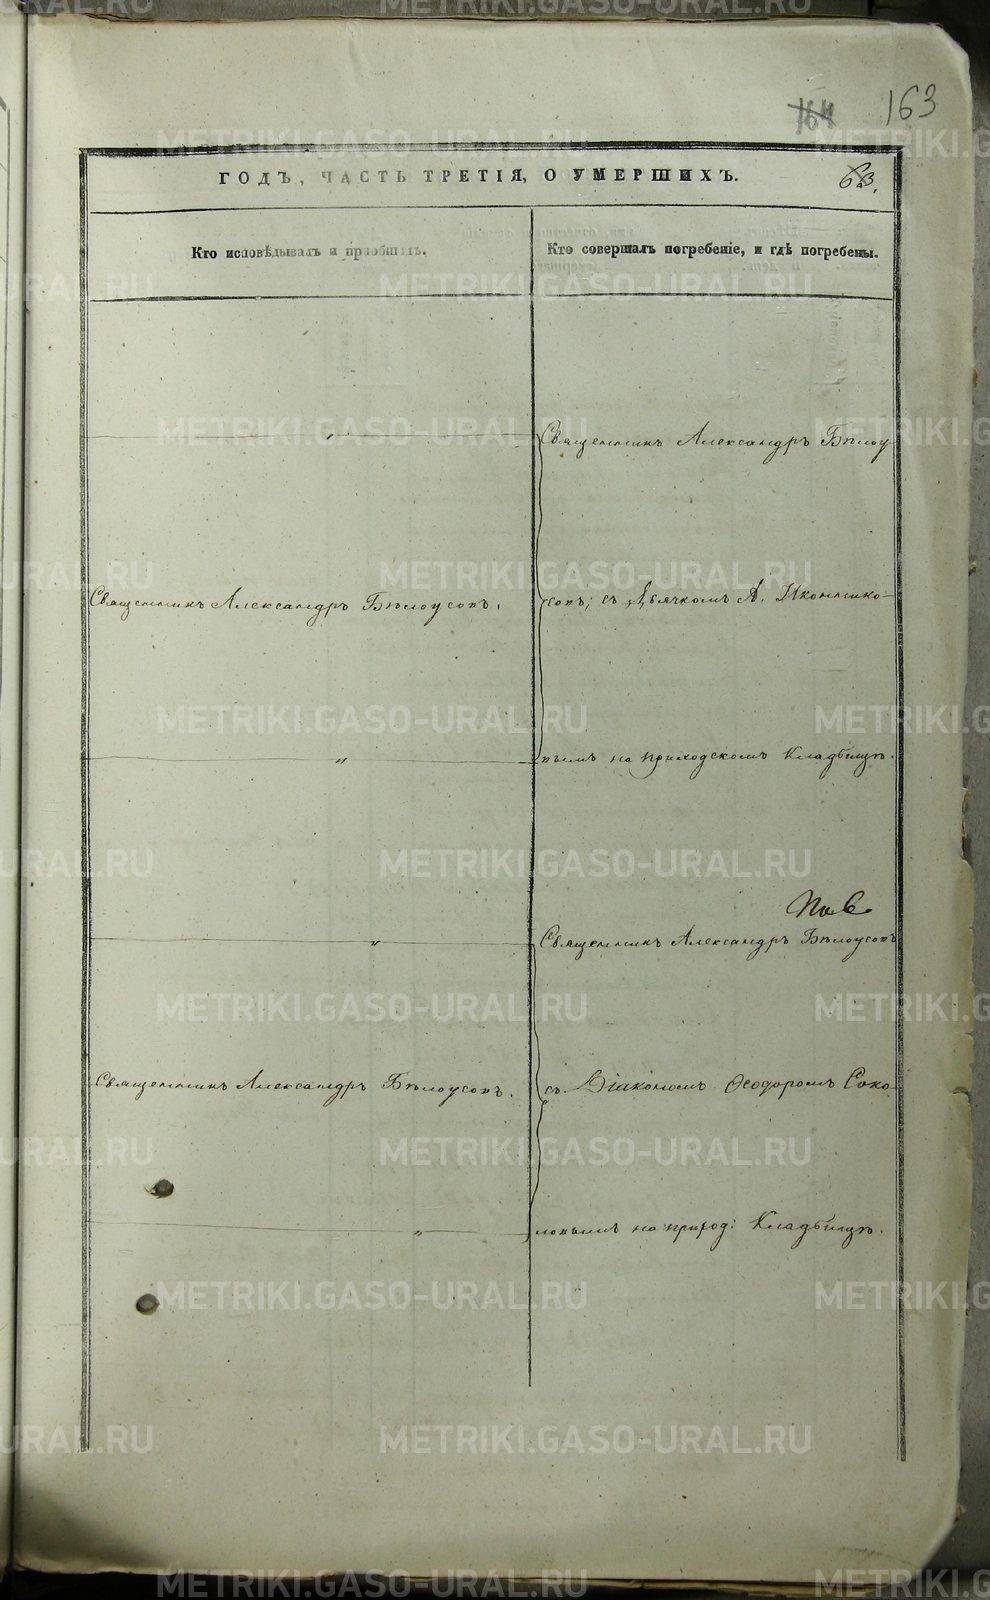 164 163
ГОДЪ, ЧАСТЬ ТРЕТІЯ, О УМЕРШИХЪ.
63.
Кто исповѣдывалъ и пріобщалъ.
Кто совершалъ погребеніе, и гдѣ погребены.
„
Священникъ Александръ Бѣлоу-
Священникъ Александръ Бѣлоусовъ.
совъ; съ Дьячкомъ А. Иконнико-
„
вымъ на приходскомъ Кладбищѣ.
„
Священникъ Александръ Бѣлоусовъ
Священникъ Александръ Бѣлоусовъ.
съ Діакономъ Ѳеодоромъ Соко-
„
ловымъ на приход: Кладбищѣ.
METRIKI.GASO-URAL.RU